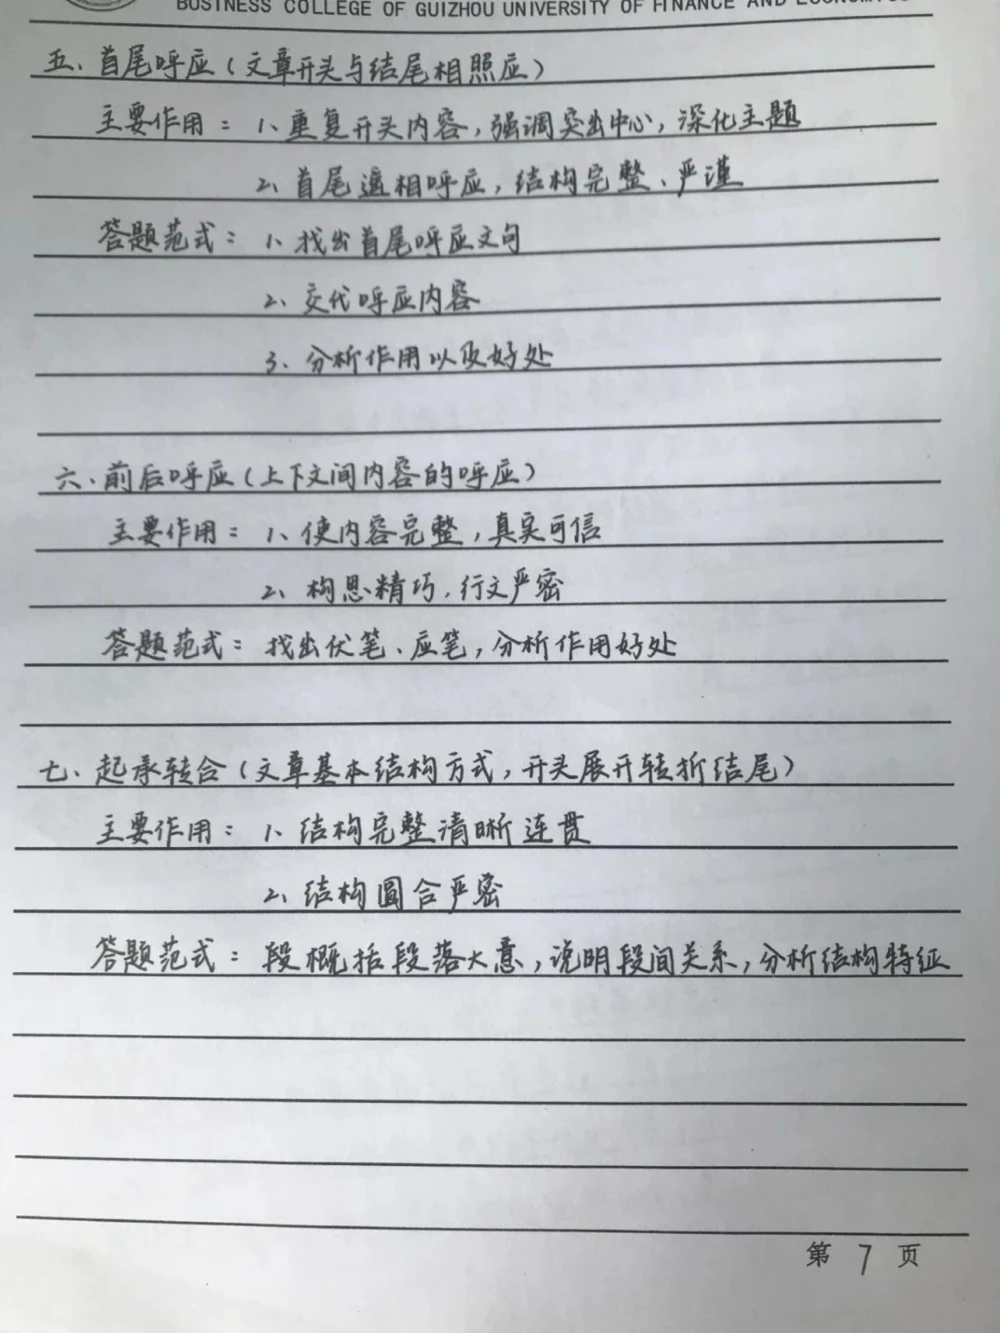 BUSINESS COLLEGE OF GUIZHOU UNIVERSITY OF FINANCE AND ECONOMICS
五、首尾呼应(文章开头与结尾相照应)
主要作用:1、重复开头内容,强调突出中心,深化主题
2、首尾遥相呼应,结构完整、严谨
答题范式:1、找出首尾呼应文句
2、交代呼应内容
3、分析作用以及好处
六、前后呼应(上下文间内容的呼应)
主要作用:1、使内容完整,真实可信
2、构思精巧,行文严密
答题范式:找出伏笔、应笔,分析作用好处
七、起承转合(文章基本结构方式,开头展开转折结尾)
主要作用:1、结构完整清晰连贯
2、结构圆合严密
答题范式:段概括段落大意,说明段间关系,分析结构特征
第 7 页